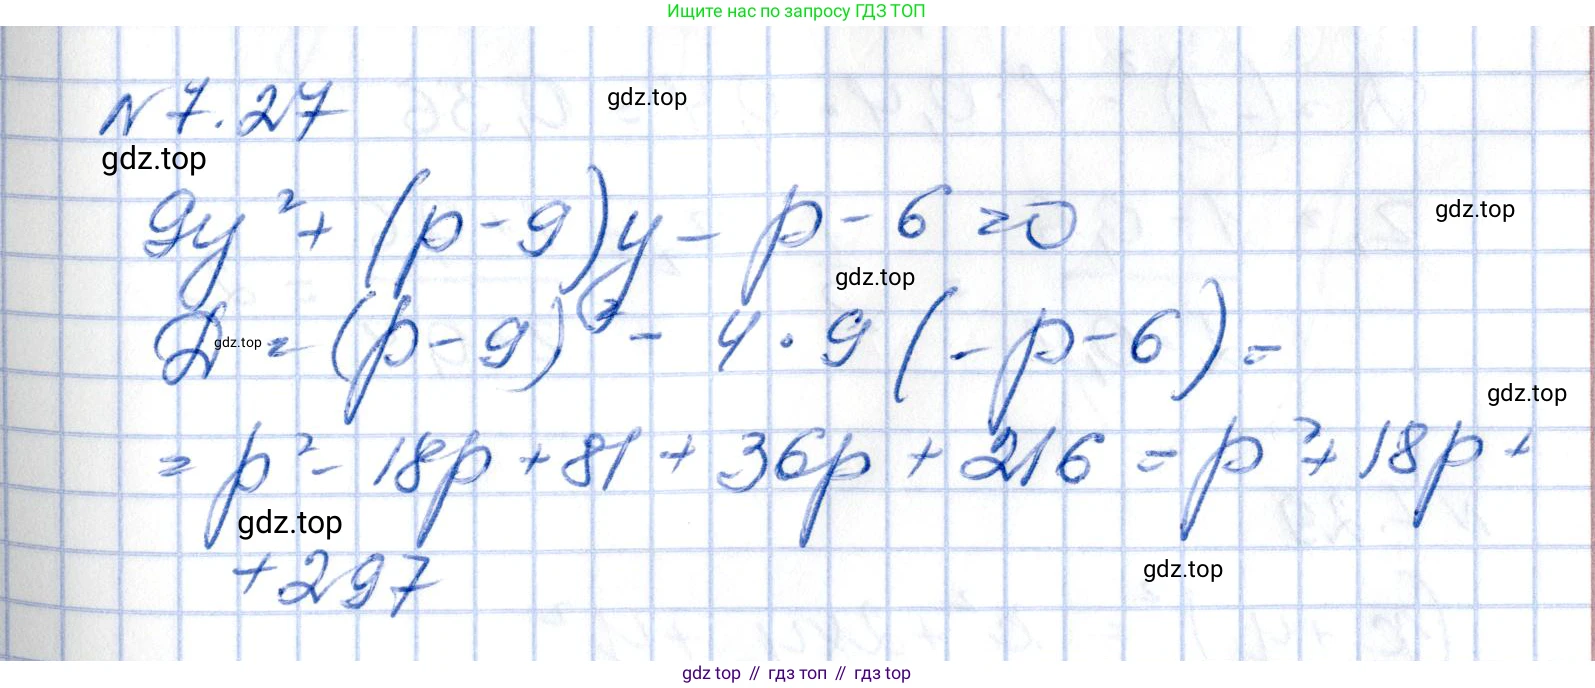 Ищите нас по запросу ГДЗ ТОП
N 7.27
gdz.top
gdz.top
9y² + (p - 9)y - p - 6 = 0
gdz.top
gdz.top
D = (p - 9)² - 4 · 9 (- p - 6) =
gdz.top
gdz.top
= p² - 18p + 81 + 36p + 216 = p² + 18p +
gdz.top
+ 297
gdz.top
gdz top // гдз топ // гдз top